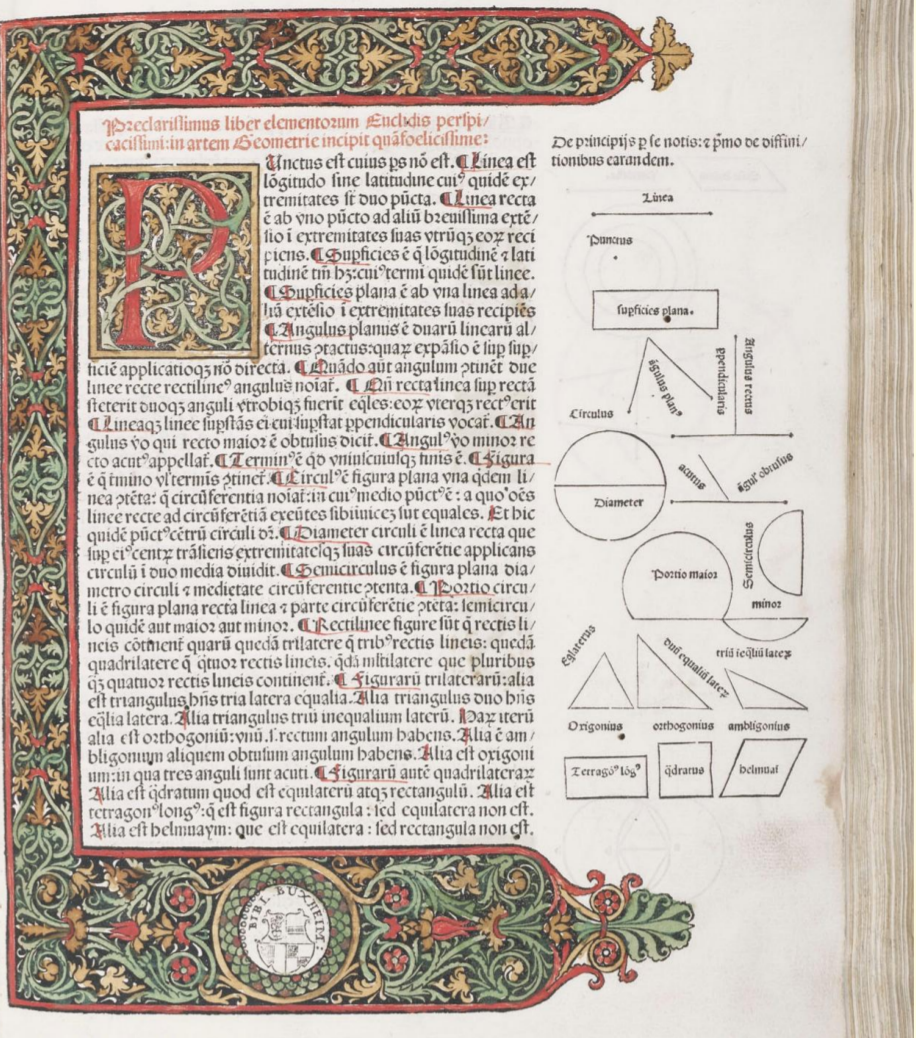 Preclarissimus liber elementorum Euclidis perspi/
cacissimi: in artem Geometrie incipit quãfoelicissime:
P
Unctus est cuius ps nõ est. ¶ Linea est
lõgitudo sine latitudine cuiꝰ quidẽ ex/
tremitates sũt duo pũcta. ¶ Linea recta
ẽ ab vno pũcto ad aliũ breuissima extẽ/
sio ĩ extremitates suas vtrũqꝫ eoꝝ reci
piens. ¶ Supficies ẽ q̃ lõgitudinẽ ⁊ lati
tudinẽ tm̃ hꝫ: cuiꝰ termi quidẽ sũt linee.
¶ Supficies plana ẽ ab vna linea ad a/
liã extẽsio ĩ extremitates suas recipiẽs
¶ Angulus planus ẽ duarũ linearũ al/
ternus ꝯtactus: quaꝝ expãsio ẽ sup sup/
ficiẽ applicatioqꝫ nõ directa. ¶ Quãdo aũt angulum ꝯtinẽt due
linee recte rectilineꝰ angulus noiat̃. ¶ Qñ recta linea sup rectã
steterit duoqꝫ anguli vtrobiqꝫ fuerĩt eq̃les: eoꝝ vterqꝫ rectꝰ erit
¶ Lineaqꝫ linee supstãs ei cui supstat ppendicularis vocat̃. ¶ An
gulus ṽo qui recto maior ẽ obtusus dicit̃. ¶ Angulꝰ ṽo minor re
cto acutꝰ appellat̃. ¶ Terminꝰ ẽ qd̃ vniuscuiusqꝫ finis ẽ. ¶ Figura
ẽ q̃ tmino vl̃ terminis ꝯtinet̃. ¶ Circulꝰ ẽ figura plana vna q̃dem li/
nea ꝯtẽta: q̃ circũferentia noiat̃: in cuiꝰ medio pũctꝰ ẽ: a quo oẽs
linee recte ad circũferẽtiã exeũtes sibiinuicẽ sũt equales. Et hic
quidẽ pũctꝰ cẽtrũ circuli dr̃. ¶ Diameter circuli ẽ linea recta que
sup eiꝰ centꝝ trãsiens extremitatesqꝫ suas circũferẽtie applicans
circulũ ĩ duo media diuidit. ¶ Semicirculus ẽ figura plana dia/
metro circuli ⁊ medietate circũferentie ꝯtenta. ¶ Portio circu/
li ẽ figura plana recta linea ⁊ parte circũferẽtie ꝯtẽta: semicircu/
lo quidẽ aut maior aut minor. ¶ Rectilinee figure sũt q̃ rectis li/
neis cõtinent̃ quarũ quedã trilatere q̃ tribꝰ rectis lineis: quedã
quadrilatere q̃ q̃tuor rectis lineis. q̃dã mltilatere que pluribus
qꝫ quatuor rectis lineis continent̃. ¶ Figurarũ trilaterarũ: alia
est triangulus hñs tria latera equalia. Alia triangulus duo hñs
eq̃lia latera. Alia triangulus triũ inequalium laterũ. Haꝝ iterũ
alia est orthogoniũ: vnũ .s. rectum angulum habens. Alia ẽ am/
bligonium aliquem obtusum angulum habens. Alia est oxigoni
um: in qua tres anguli sunt acuti. ¶ Figurarũ autẽ quadrilateraꝝ
Alia est q̃dratum quod est equilaterũ atqꝫ rectangulũ. Alia est
tetragonꝰ longꝰ: q̃ est figura rectangula: sed equilatera non est.
Alia est helmuaym: que est equilatera: sed rectangula non est.
De principijs p se notis: ⁊ p̃mo de diffini/
tionibus earandem.
Linea
Punctus
supficies plana.
ãgulus planꝰ
ppendicularis
Angulus rectus
Circulus
acutus
ãgulꝰ obtusus
Diameter
Portio maior
Semicirculus
minor
Eqlaterus
duũ equaliũ lateꝝ
triũ ieq̃liũ lateꝝ
Oxigonius
orthogonius
ambligonius
Tetragõꝰ lõgꝰ
q̃dratus
helmuaĩ
BIBL. BUXHEIM: